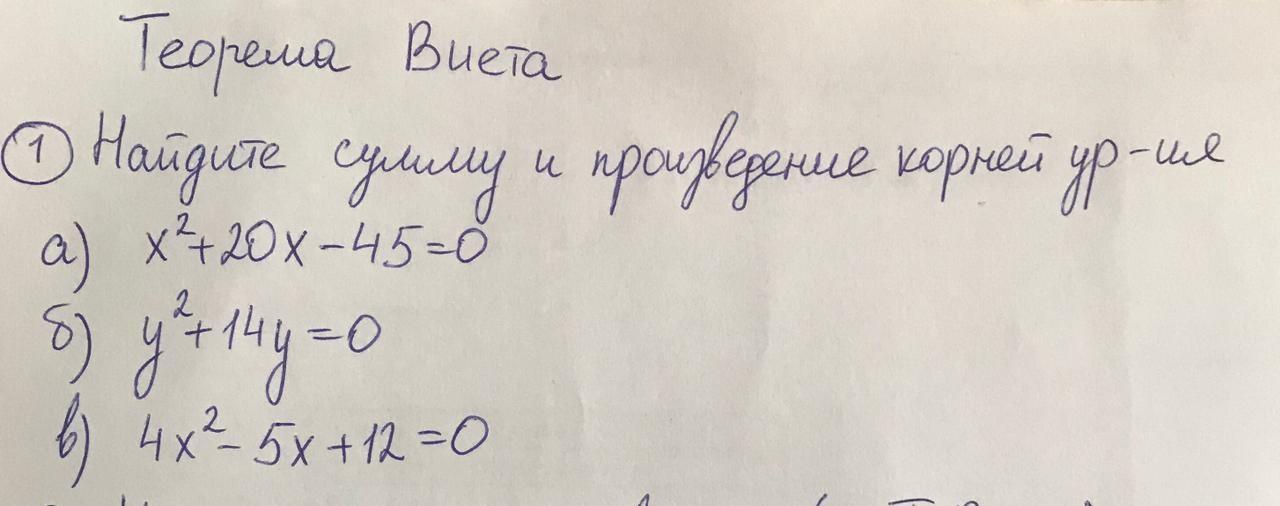 Теорема Виета
① Найдите сумму и произведение корней ур-ия
а) x²+20x-45=0
б) y²+14y=0
в) 4x²-5x+12=0